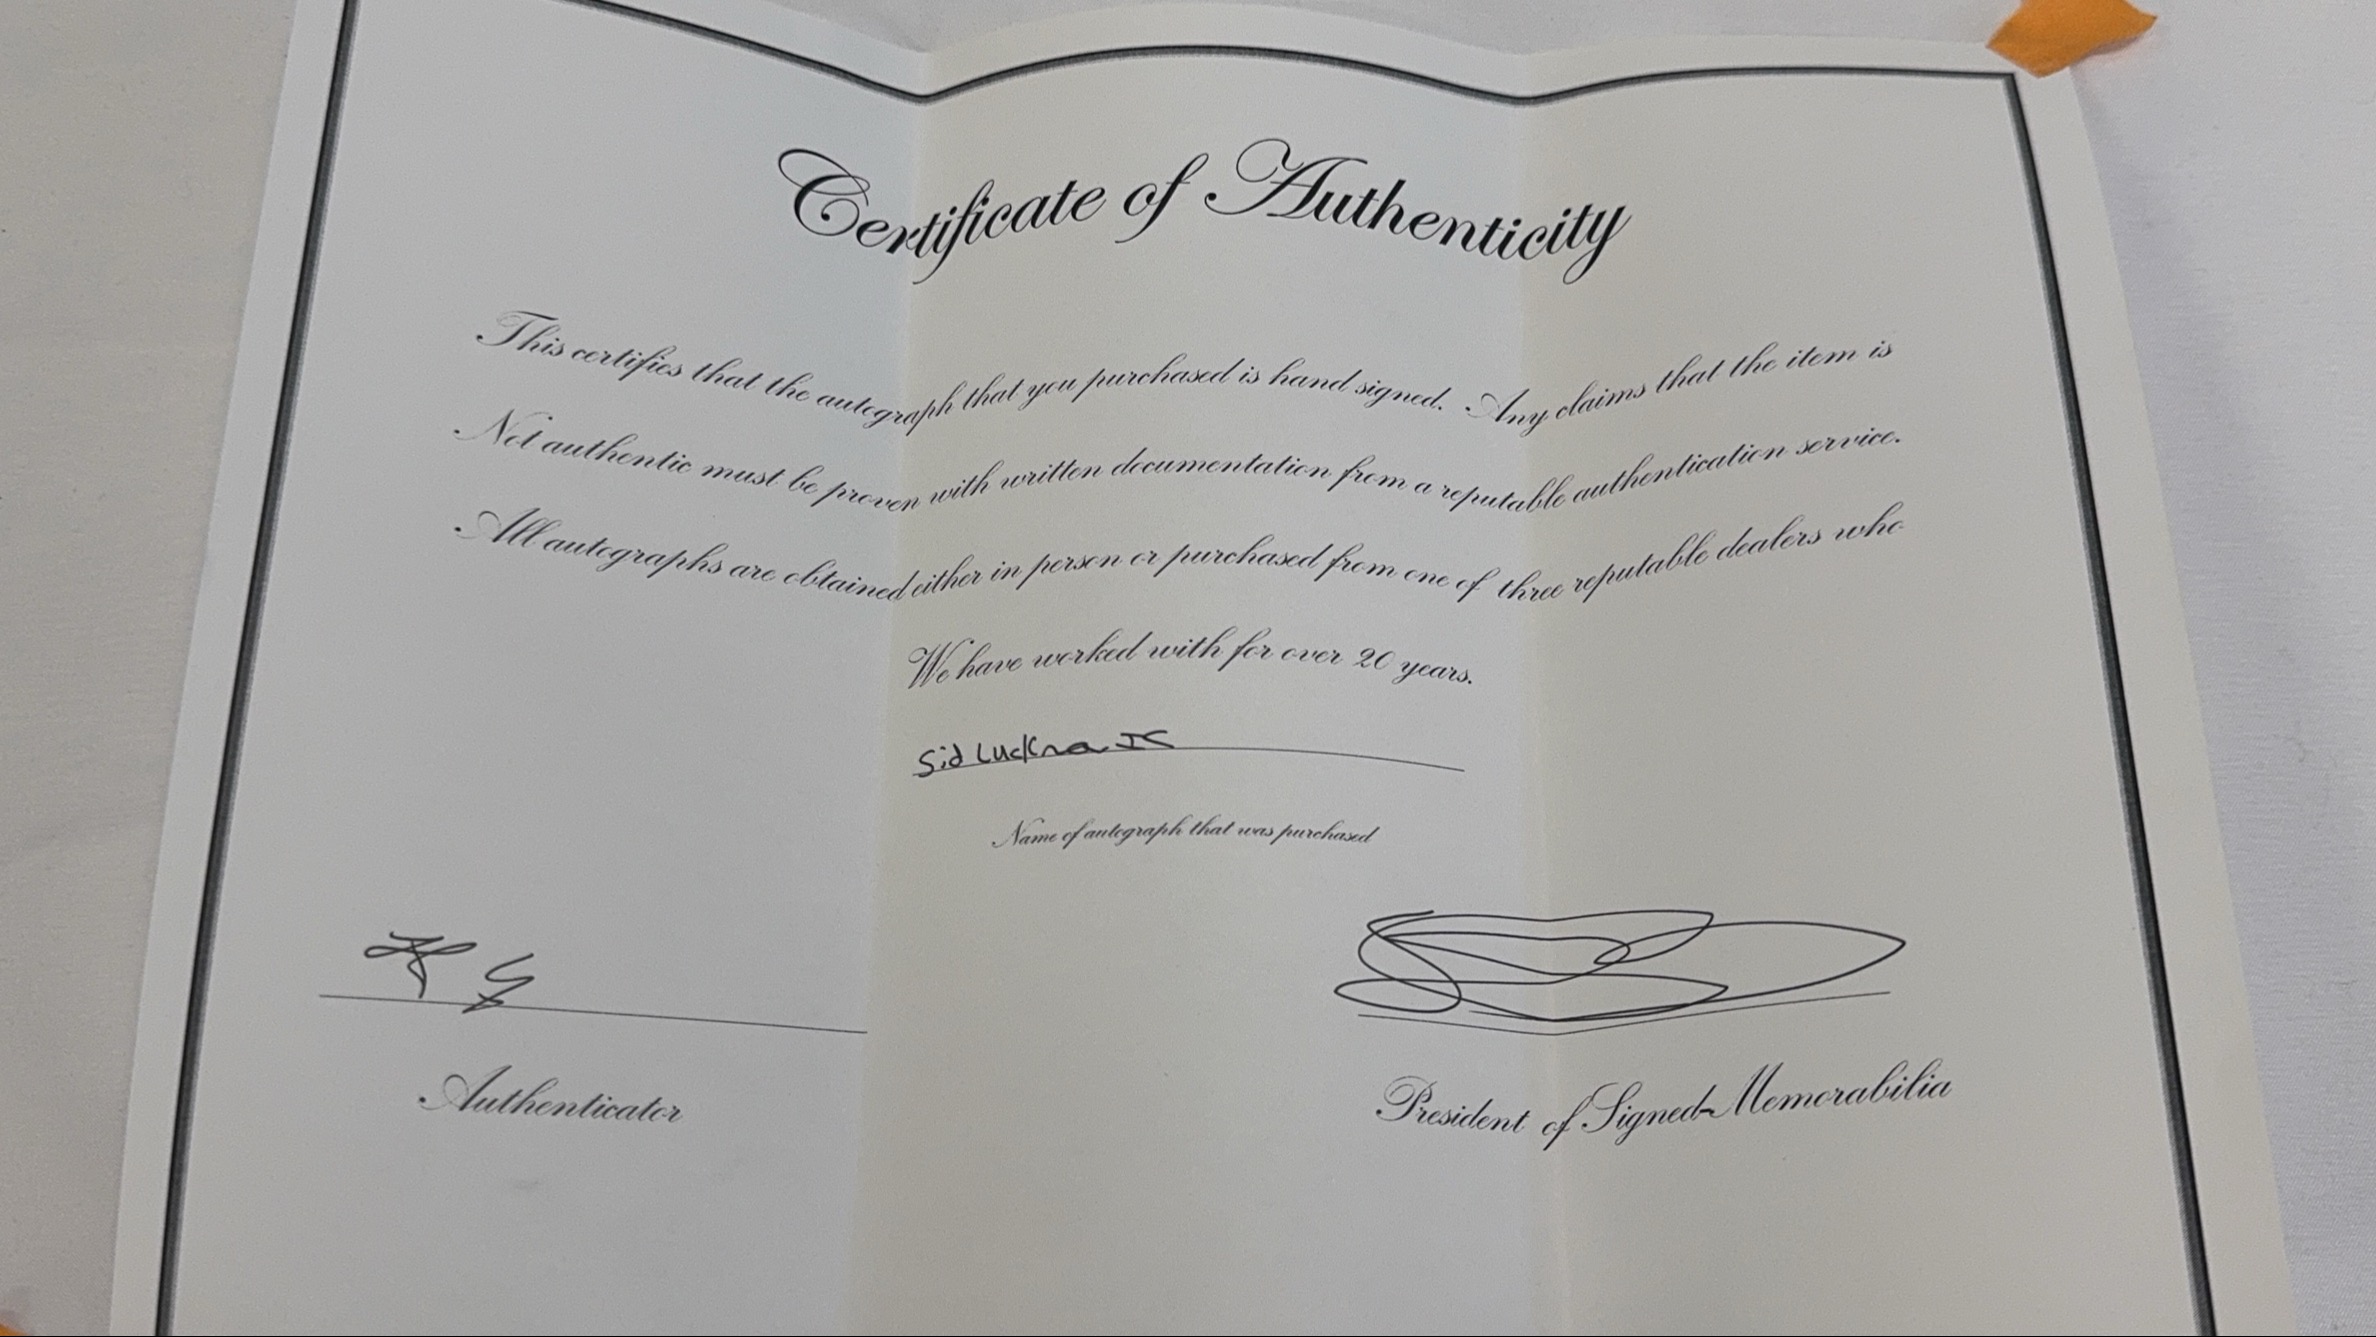 Certificate of Authenticity
This certifies that the autograph that you purchased is hand signed. Any claims that the item is
Not authentic must be proven with written documentation from a reputable authentication service.
All autographs are obtained either in person or purchased from one of three reputable dealers who
We have worked with for over 20 years.
Sid
Name of autograph that was purchased
Authenticator
President of Signed-Memorabilia